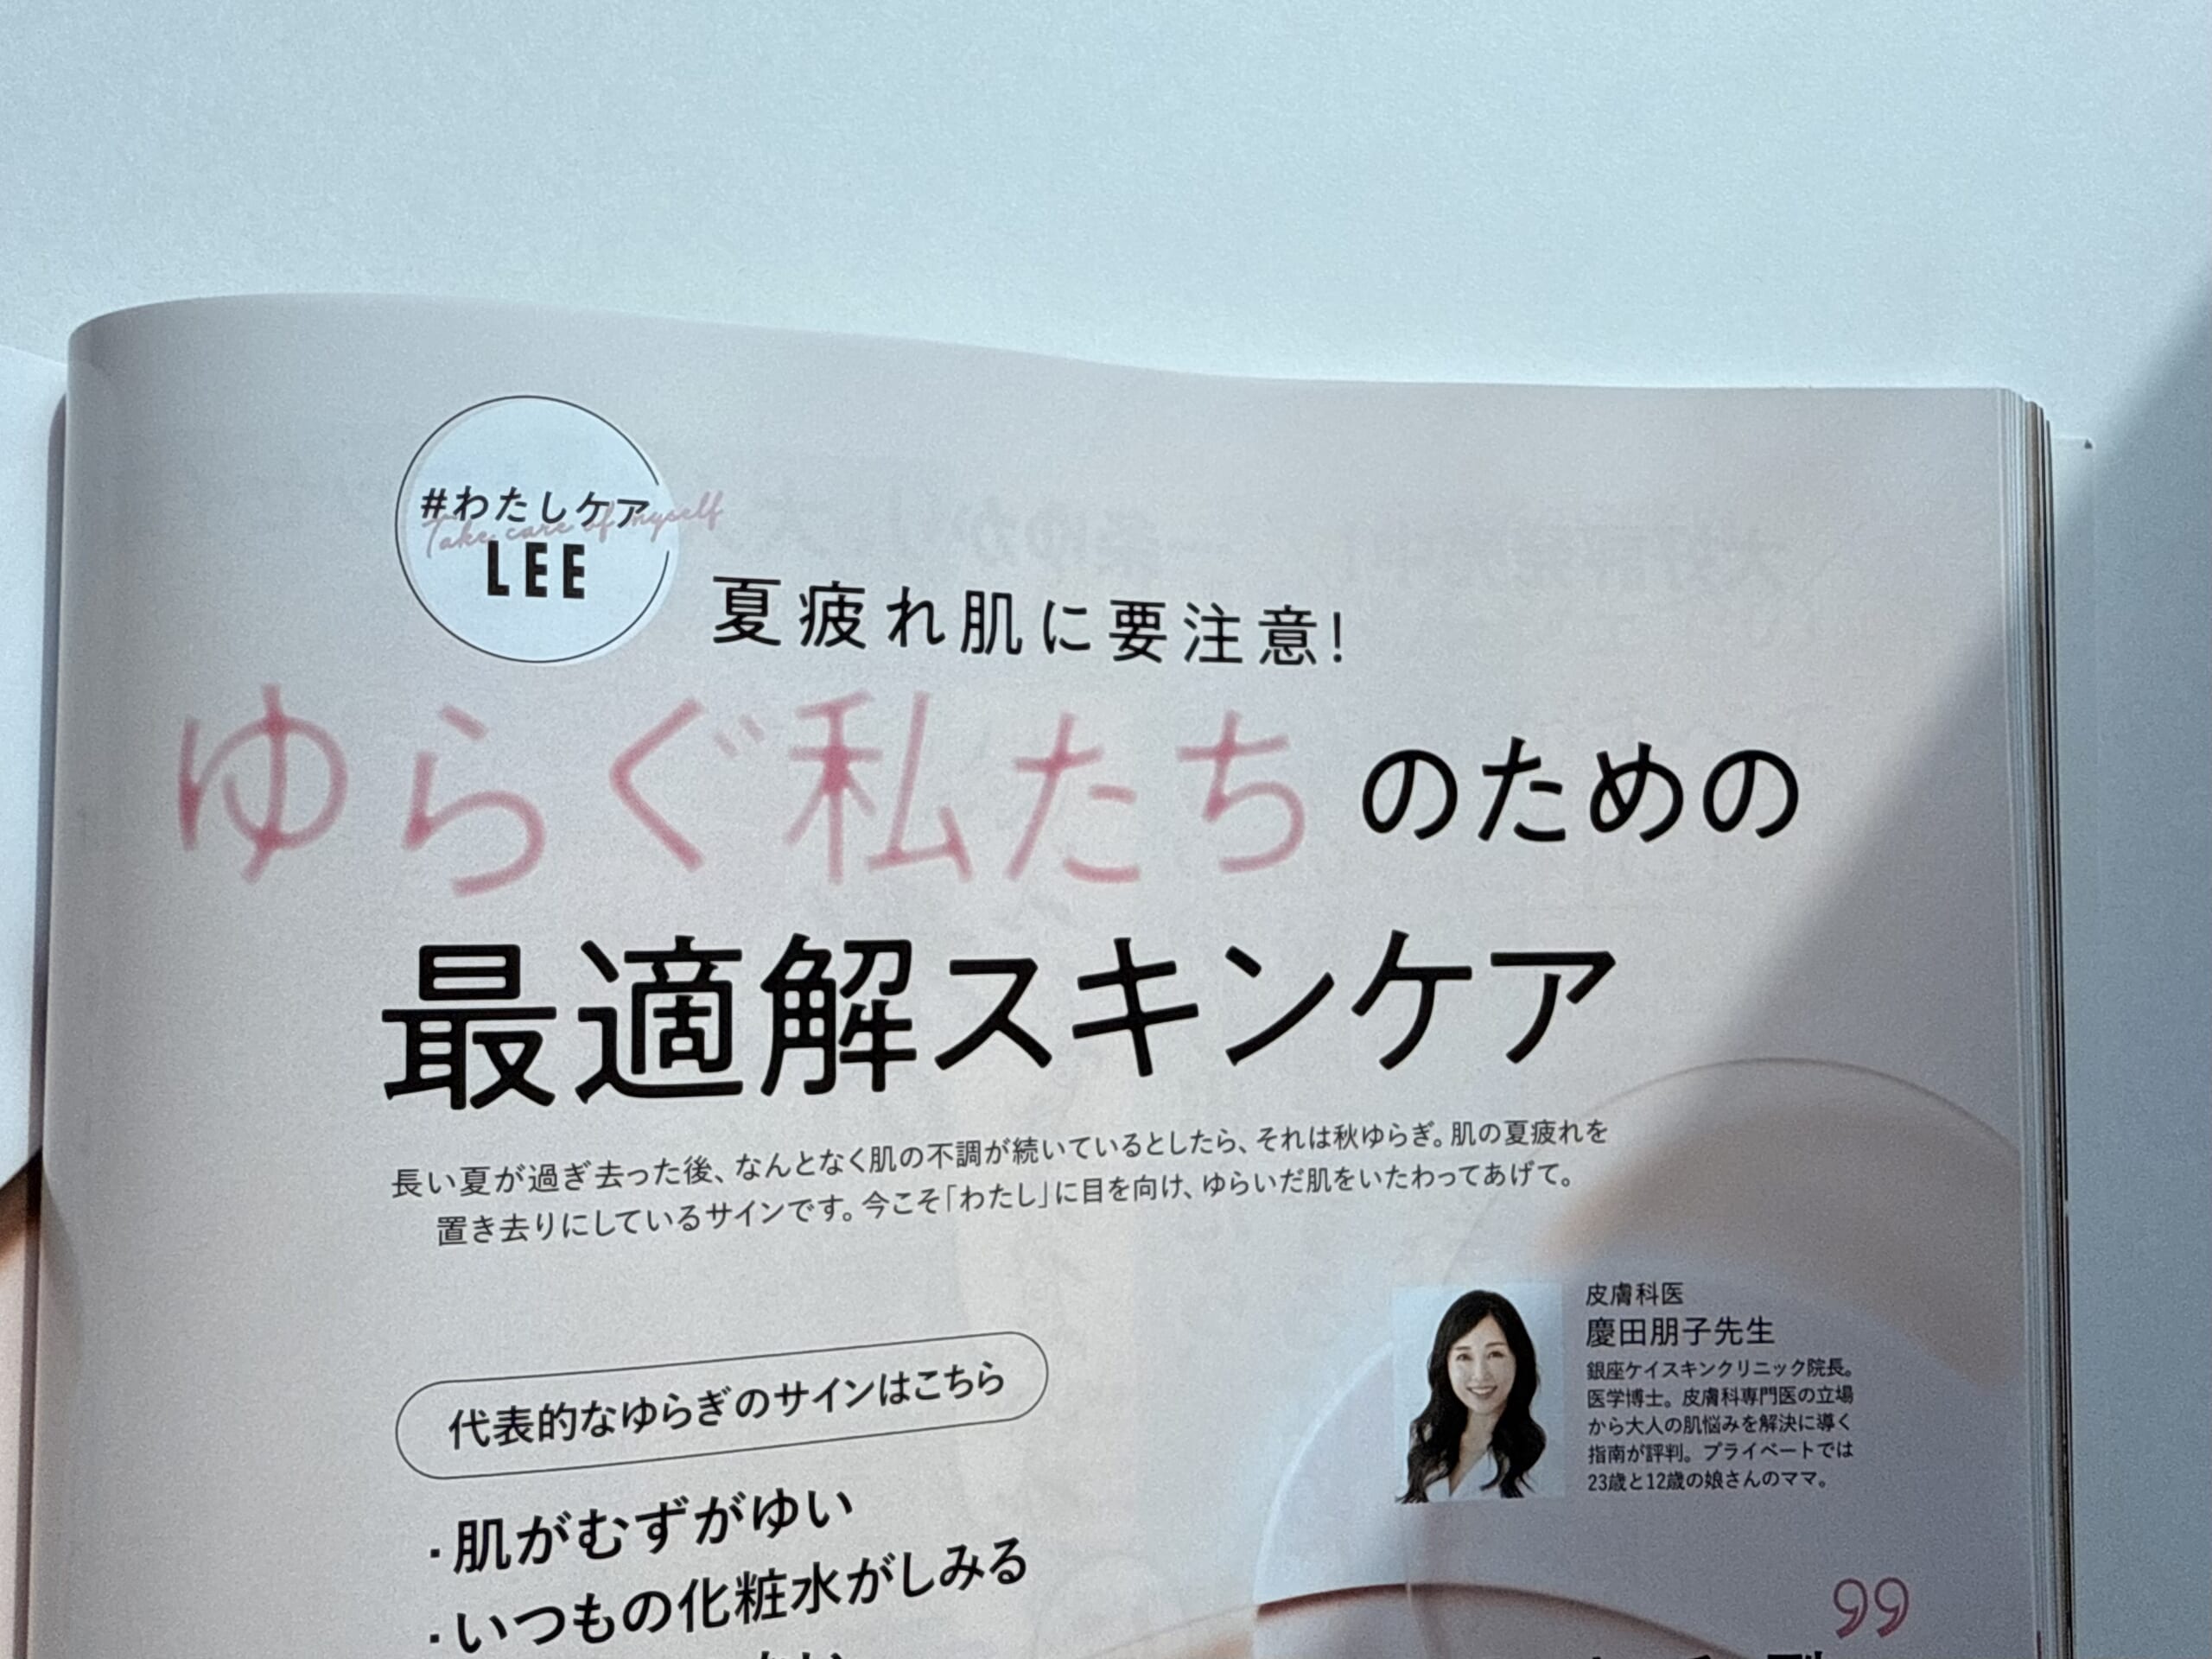 #わたしケア
Take care of myself
LEE
夏疲れ肌に要注意!
ゆらぐ私たちのための
最適解スキンケア
長い夏が過ぎ去った後、なんとなく肌の不調が続いているとしたら、それは秋ゆらぎ。肌の夏疲れを
置き去りにしているサインです。今こそ「わたし」に目を向け、ゆらいだ肌をいたわってあげて。
皮膚科医
慶田朋子先生
銀座ケイスキンクリニック院長。
医学博士。皮膚科専門医の立場
から大人の肌悩みを解決に導く
指南が評判。プライベートでは
23歳と12歳の娘さんのママ。
代表的なゆらぎのサインはこちら
・肌がむずがゆい
・いつもの化粧水がしみる